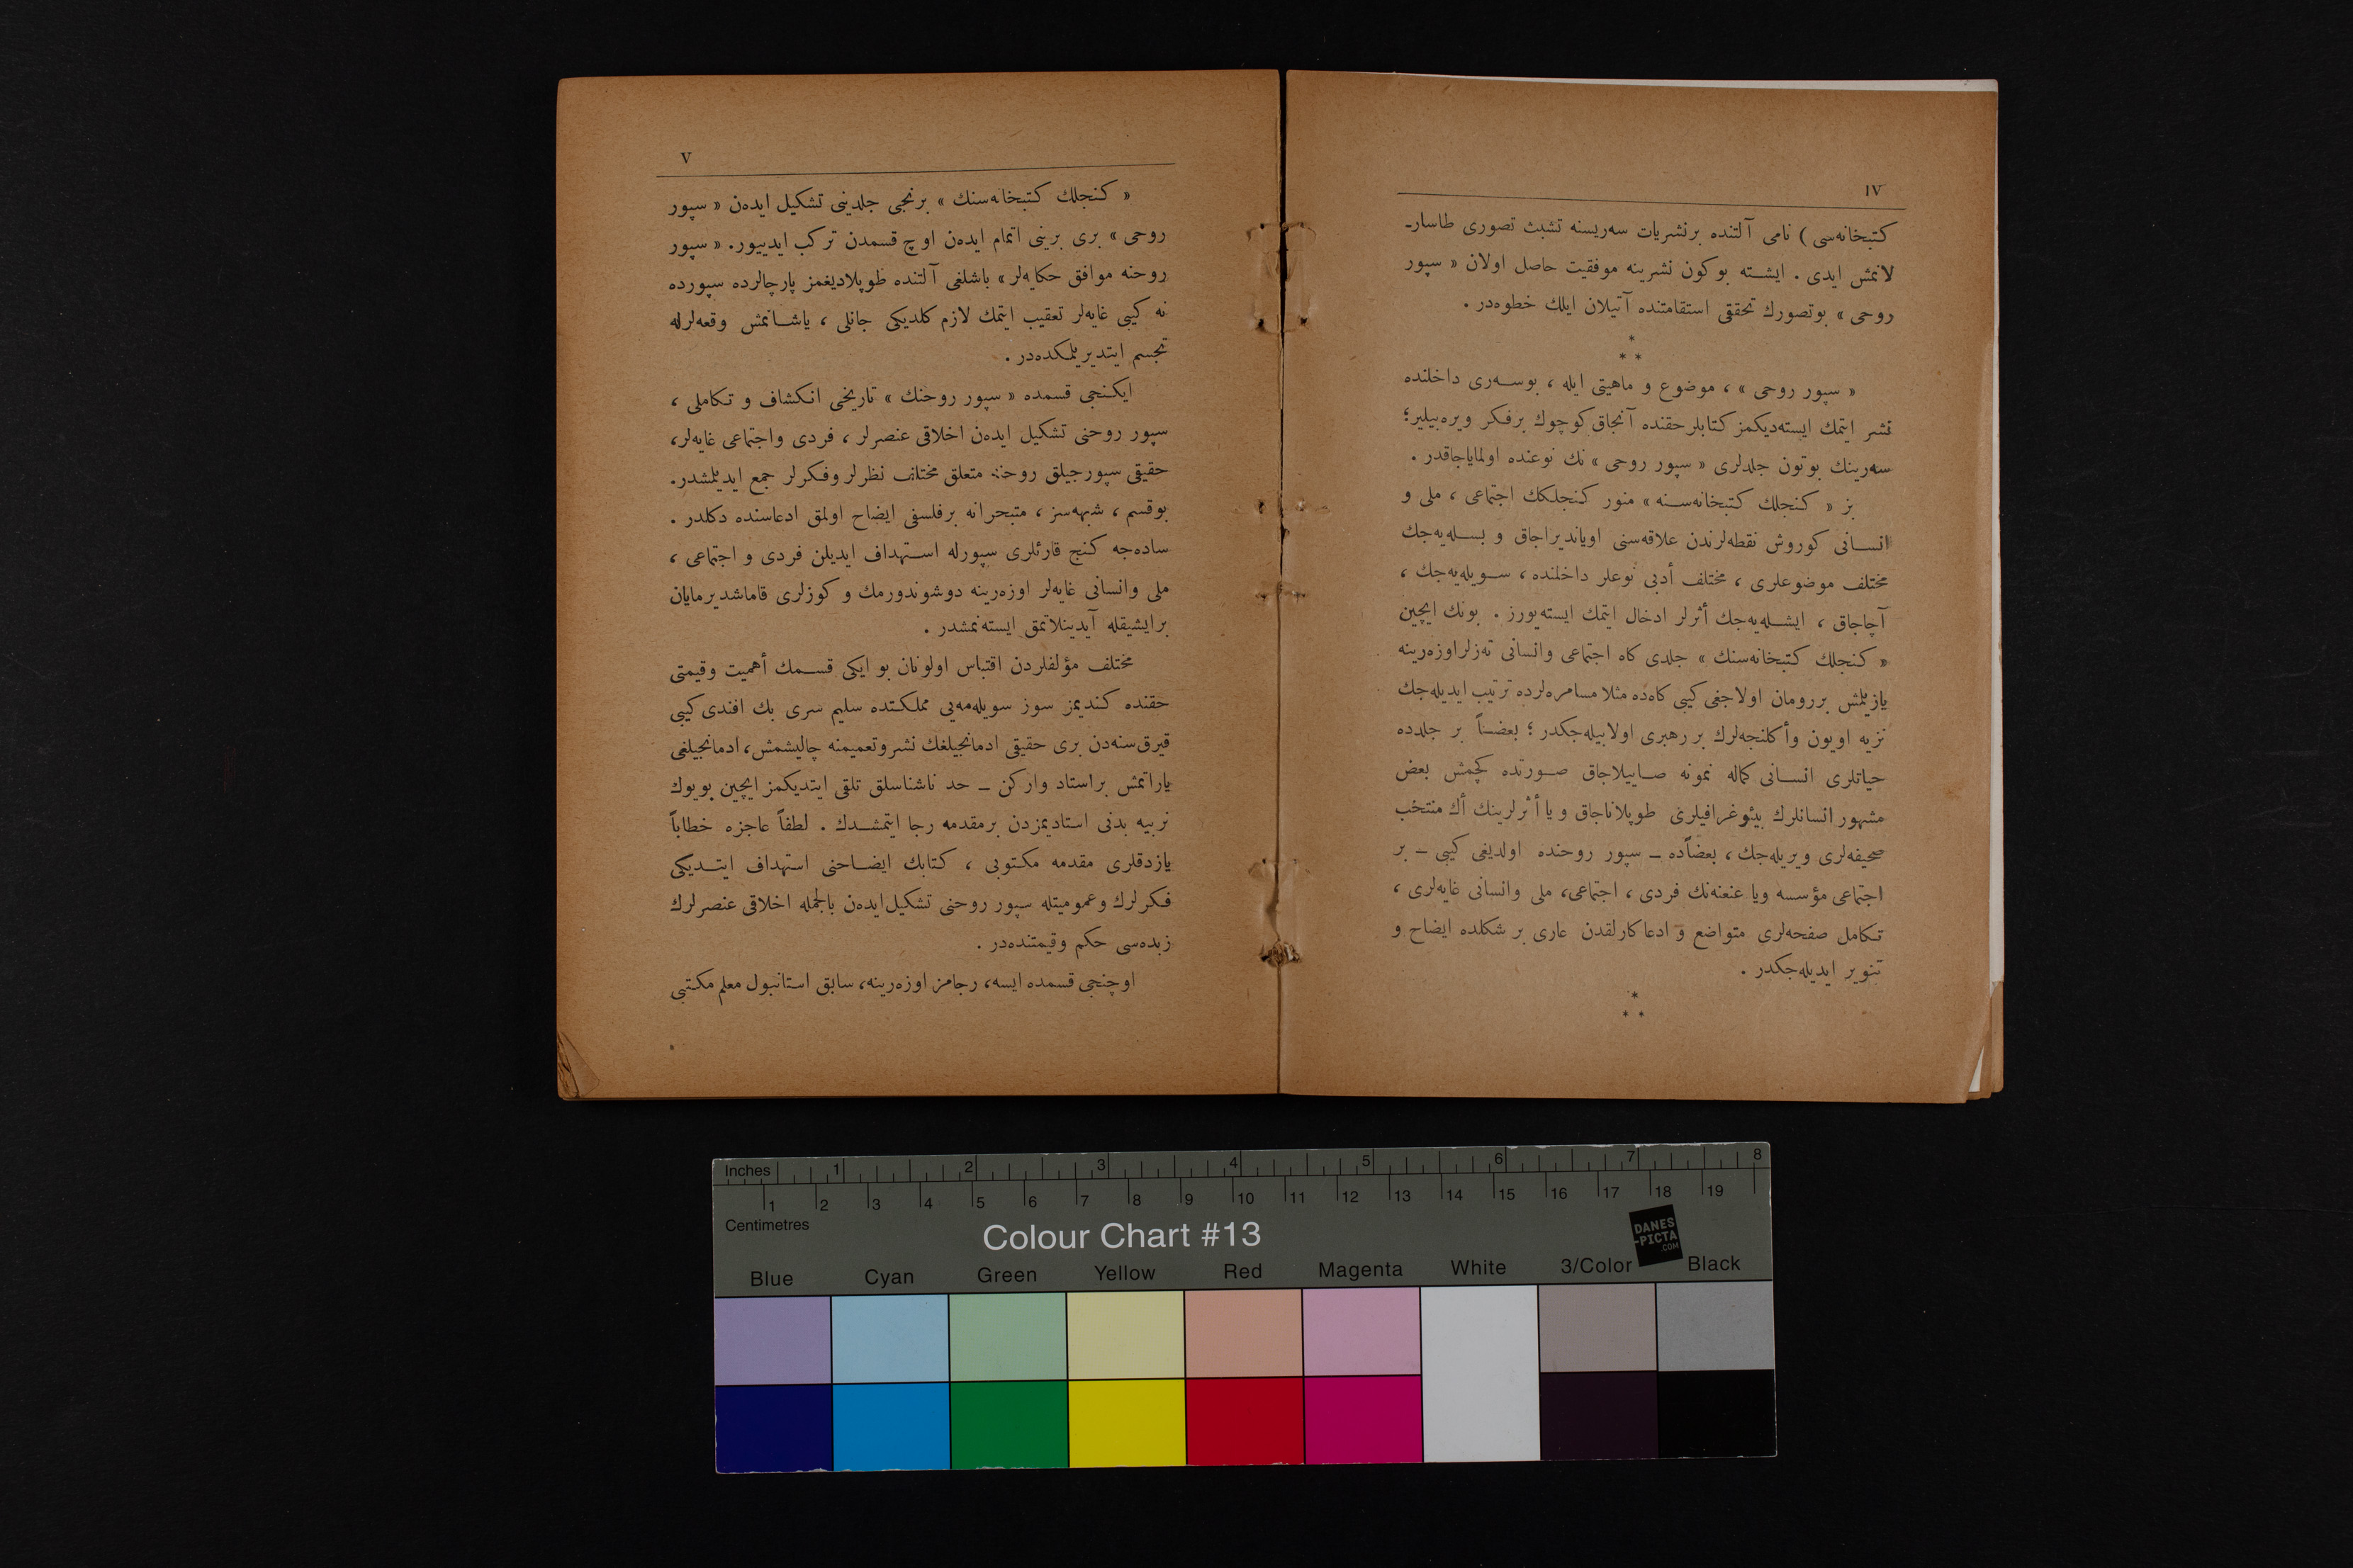 IV
كتبخانه‌سى ) نامى آلتنده برنشريات سه‌ريسنه تشبث تصورى طاسارـ
لانمش ايدى . ايشته بوكون نشرينه موفقيت حاصل اولان « سپور
روحى » بوتصورك تحققى استقامتنده آتيلان ايلك خطوه‌در .
*
* *
« سپور روحى » ، موضوع و ماهيتى ايله ، بوسه‌رى داخلنده
نشر ايتمك ايسته‌ديكمز كتابلر حقنده آنجاق كوچوك برفكر ويره‌بيلير؛
سه‌رينك بوتون جلدلرى « سپور روحى » نك نوعنده اولماياجاقدر .
بز « كنجلك كتبخانه‌سنه » منور كنجلكك اجتماعى ، ملى و
انسانى كوروش نقطه‌لرندن علاقه‌سنى اوياندیراجاق و بسله‌يه‌جك
مختلف موضوعلرى ، مختلف أدبى نوعلر داخلنده ، سويله‌يه‌جك ،
آچاجاق ، ايشله‌يه‌جك أثرلر ادخال ايتمك ايسته‌يورز . بونك ايچين
« كنجلك كتبخانه‌سنك » جلدى كاه اجتماعى وانسانى ته‌زلر اوزه‌رينه
يازيلمش بررومان اولاجغى كيبى كاه‌ده مثلا مسامره‌لرده ترتيب ايديله‌جك
نزيه اويون وأكلنجه‌لرك بر رهبرى اولابيله‌جكدر ؛ بعضاً بر جلدده
حياتلرى انسانى كماله نمونه صاييلاجاق صورتده كچمش بعض
مشهور انسانلرك بيئوغرافيلرى طوپلاناجاق و يا أثرلرينك أك منتخب
صحيفه‌لرى ويريله‌جك ، بعضاًده ـ سپور روحنده اولديغى كيبى ـ بر
اجتماعى مؤسسه ويا عنعنه‌نك فردى ، اجتماعى ، ملى وانسانى غايه‌لرى ،
تكامل صفحه‌لرى متواضع و ادعاكارلقدن عارى بر شكلده ايضاح و
تنوير ايديله‌جكدر .
*
* *
V
« كنجلك كتبخانه‌سنك » برنجى جلدينى تشكيل ايده‌ن « سپور
روحى » برى برينى اتمام ايده‌ن اوچ قسمدن تركب ايدييور. « سپور
روحنه موافق حكايه‌لر » باشلغى آلتنده طوپلاديغمز پارچالرده سپورده
نه كيبى غايه‌لر تعقيب ايتمك لازم كلديكى جانلى ، ياشانمش وقعه‌لرله
تجسم ايتديريلمكده‌در .
ايكنجى قسمده « سپور روحنك » تاريخى انكشاف و تكاملى ،
سپور روحنى تشكيل ايده‌ن اخلاقى عنصرلر ، فردى واجتماعى غايه‌لر،
حقيقى سپورجيلق روحنه متعلق مختلف نظرلر وفكرلر جمع ايديلمشدر.
بوقسم ، شبهه‌سز ، متبحرانه برفلسفى ايضاح اولمق ادعاسنده دكلدر .
ساده‌جه كنج قارئلرى سپورله استهداف ايديلن فردى و اجتماعى ،
ملى وانسانى غايه‌لر اوزه‌رينه دوشوندورمك و كوزلرى قاماشديرمايان
برايشيقله آيدينلاتمق ايسته‌نمشدر .
مختلف مؤلفلردن اقتباس اولونان بو ايكى قسمك أهميت وقيمتى
حقنده كنديمز سوز سويله‌مه‌يى مملكتده سليم سرى بك افندى كيبى
قيرق سنه‌دن برى حقيقى ادمانجيلغك نشروتعميمنه چاليشمش، ادمانجيلغى
ياراتمش براستاد واركن ـ حد ناشناسلق تلقى ايتديكمز ايچين بويوك
تربيه بدنى استاديمزدن برمقدمه رجا ايتمشدك . لطفاً عاجزه خطاباً
يازدقلرى مقدمه مكتوبى ، كتابك ايضاحنى استهداف ايتديكى
فكرلرك وعموميتله سپور روحنى تشكيل ايده‌ن بالجمله اخلاقى عنصرلرك
زبده‌سى حكم وقيمتنده‌در .
اوچنجى قسمده ايسه، رجامز اوزه‌رينه، سابق استانبول معلم مكتبى
Inches 1 2 3 4 5 6 7 8
1 2 3 4 5 6 7 8 9 10 11 12 13 14 15 16 17 18 19
Centimetres
Colour Chart #13
DANES
-PICTA
.COM
Blue Cyan Green Yellow Red Magenta White 3/Color Black